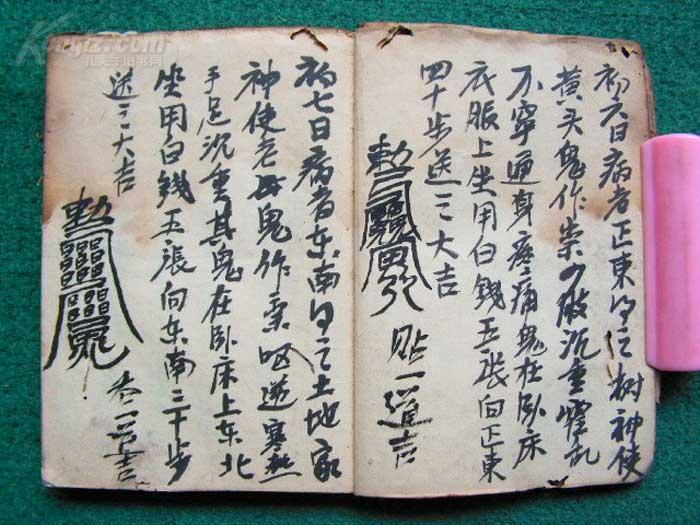 初六日病者正东得之树神使
黄头鬼作祟少酸沉重霍乱
不宁通身疼痛鬼在卧床
衣服上坐用白钱五张向正东
四十步送之大吉
贴一道吉
初七日病者东南得之土地家
神使老母鬼作祟呕逆寒热
手足沉重其鬼在卧床上东北
坐用白钱五张向东南三十步
送之大吉
一道吉
孔夫子旧书网